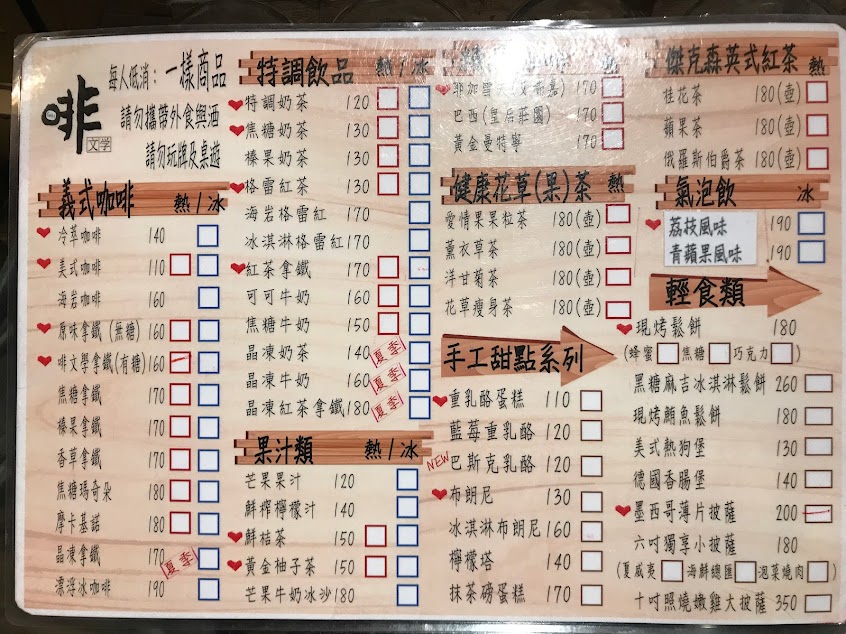 啡
文学
每人低消：一樣商品
請勿攜帶外食與酒
請勿玩牌及桌遊
義式咖啡 熱/冰
冷萃咖啡 140
美式咖啡 110
海岩咖啡 160
原味拿鐵(無糖) 160
啡文學拿鐵(有糖) 160
焦糖拿鐵 170
榛果拿鐵 170
香草拿鐵 170
焦糖瑪奇朵 180
摩卡基諾 180
晶凍拿鐵 170 夏季
漂浮冰咖啡 190
特調飲品 熱/冰
特調奶茶 120
焦糖奶茶 130
榛果奶茶 130
格雷紅茶 130
海岩格雷紅 170
冰淇淋格雷紅 170
紅茶拿鐵 170
可可牛奶 160
焦糖牛奶 150
晶凍奶茶 140 夏季
晶凍牛奶 160 夏季
晶凍紅茶拿鐵 180 夏季
果汁類 熱/冰
芒果果汁 120
鮮搾檸檬汁 140
鮮桔茶 150
黃金柚子茶 150
芒果牛奶冰沙 180
170
巴西(皇后莊園) 170
黃金曼特寧 170
健康花草(果)茶 熱
愛情果果粒茶 180(壺)
薰衣草茶 180(壺)
洋甘菊茶 180(壺)
花草瘦身茶 180(壺)
手工甜點系列
重乳酪蛋糕 110
藍莓重乳酪 120
NEW 巴斯克乳酪 120
布朗尼 130
冰淇淋布朗尼 160
檸檬塔 140
抹茶磅蛋糕 170
傑克森英式紅茶 熱
桂花茶 180(壺)
蘋果茶 180(壺)
俄羅斯伯爵茶 180(壺)
氣泡飲 冰
荔枝風味 190
青蘋果風味 190
輕食類
現烤鬆餅 180
(蜂蜜 焦糖 巧克力)
黑糖麻吉冰淇淋鬆餅 260
現烤鮪魚鬆餅 180
美式熱狗堡 130
德國香腸堡 140
墨西哥薄片披薩 200
六吋獨享小披薩 180
(夏威夷 海鮮總匯 泡菜燒肉)
十吋照燒嫩雞大披薩 350